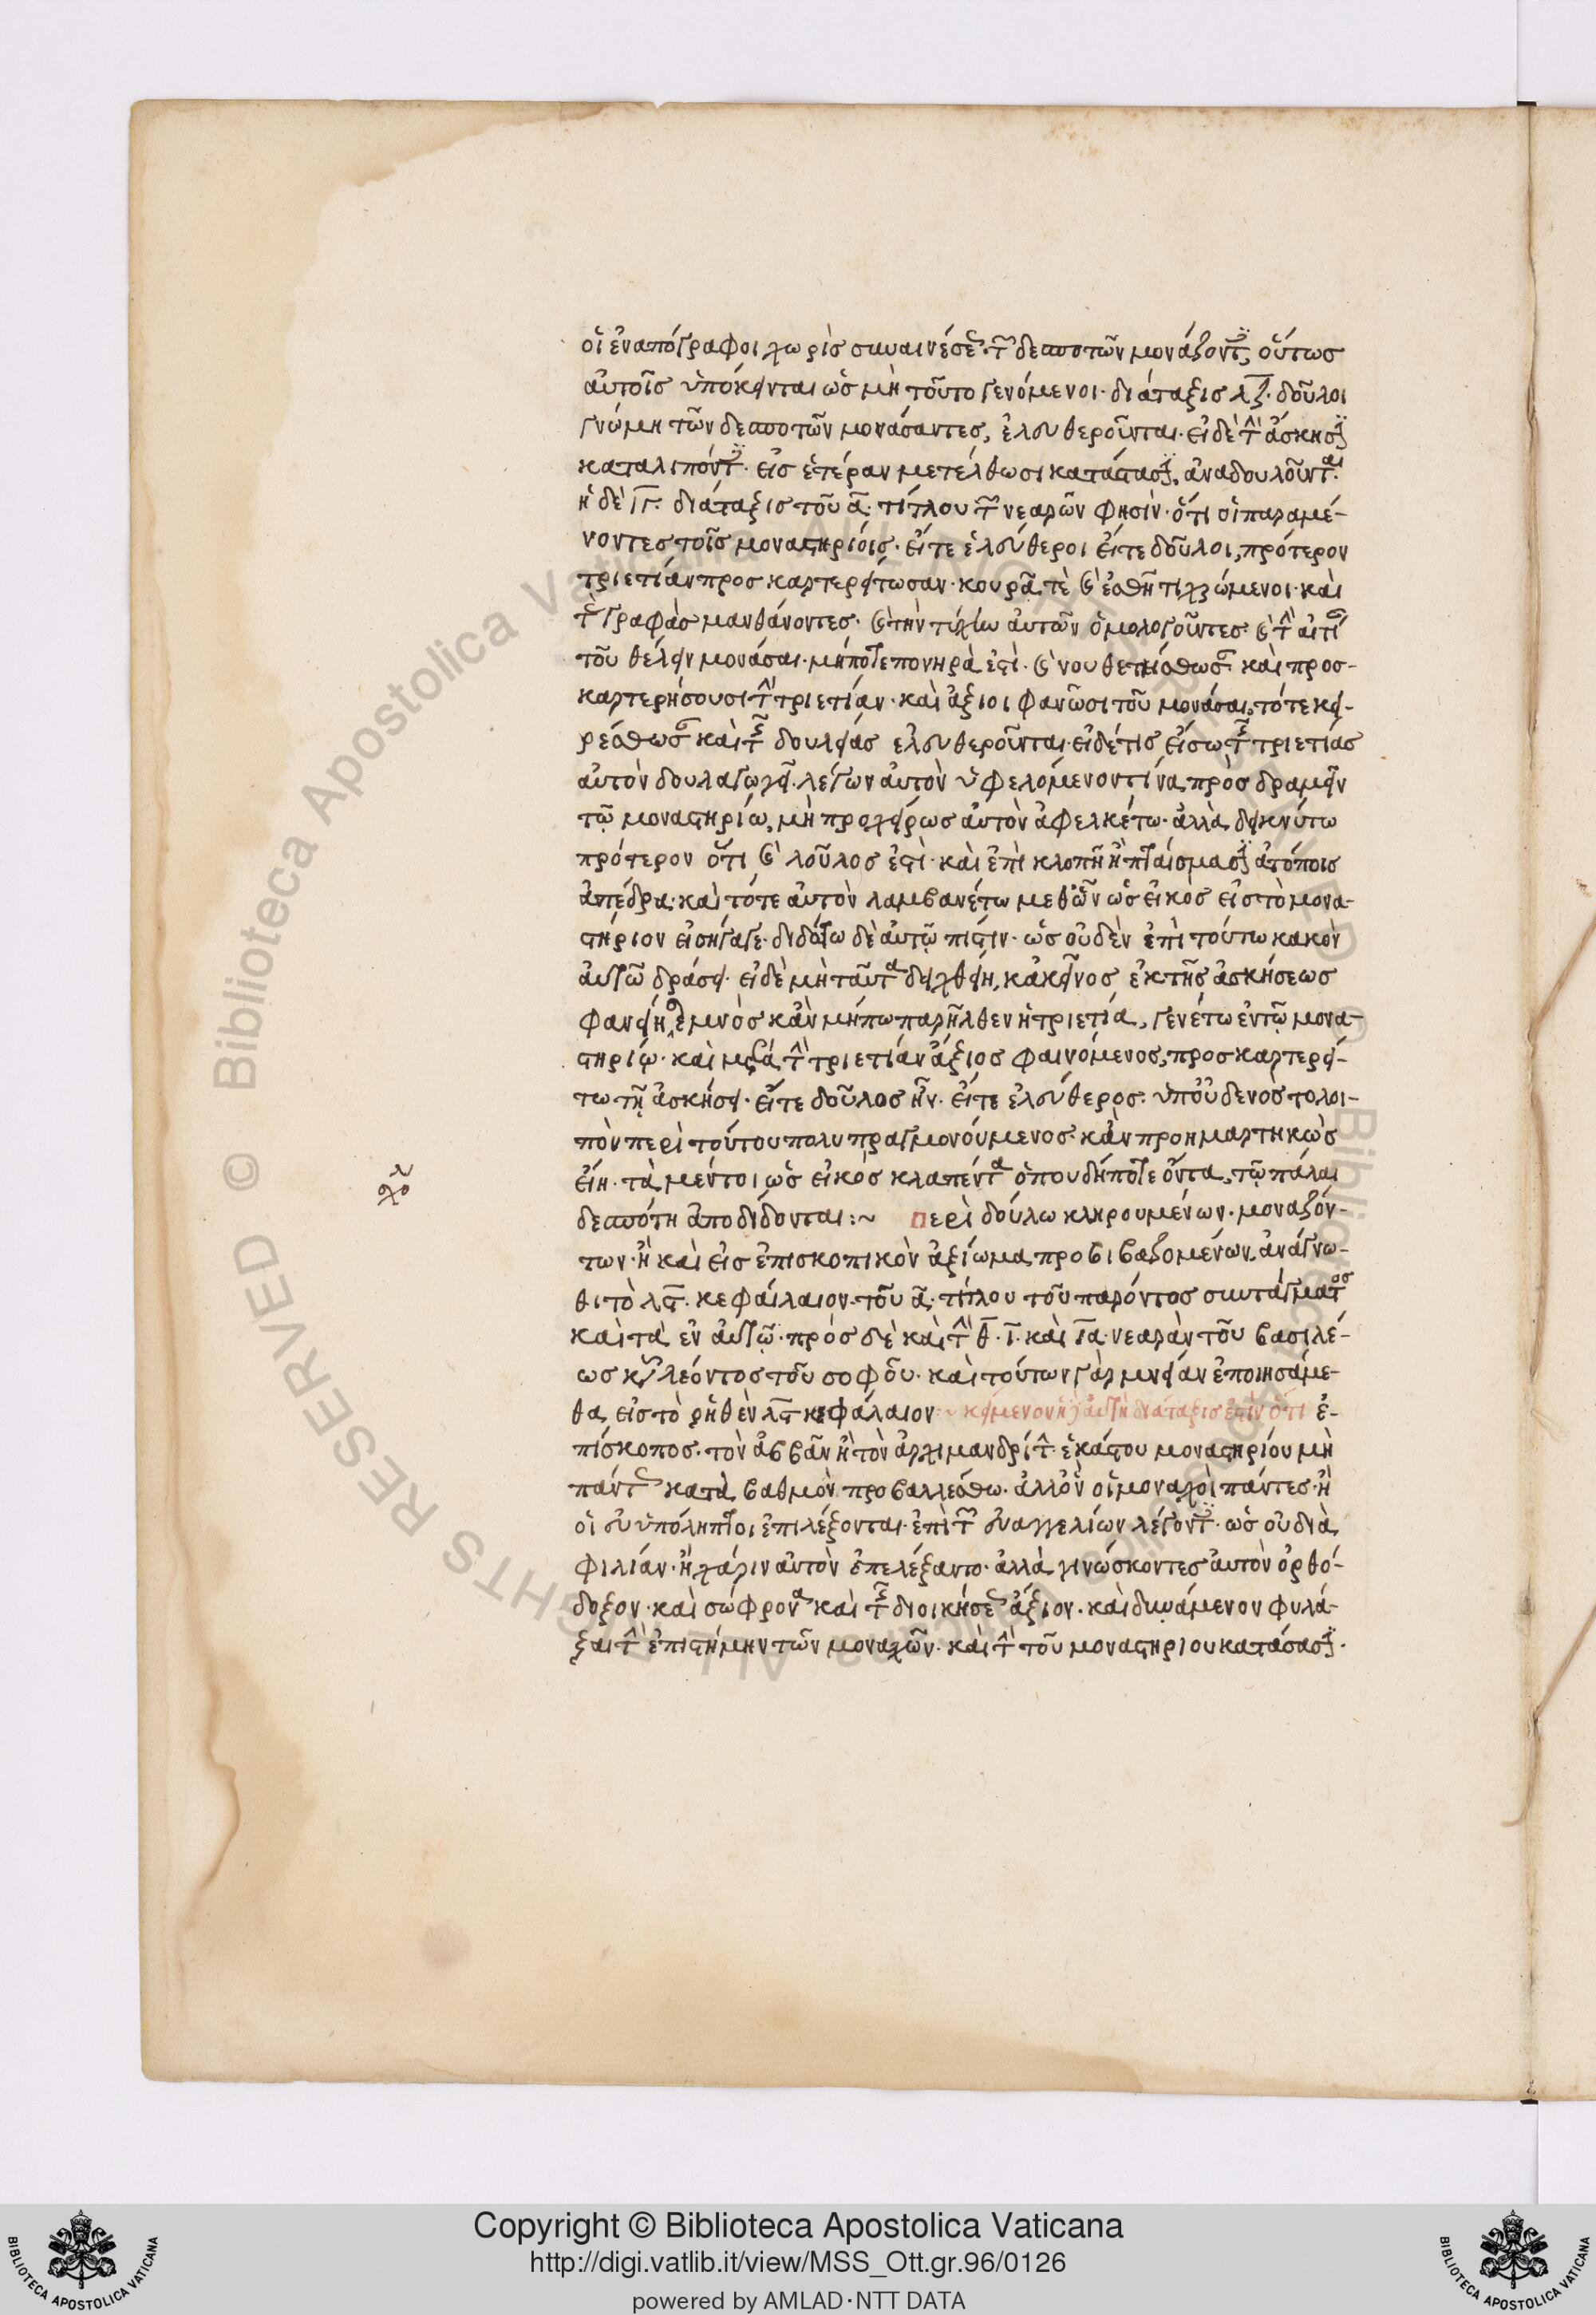 οἱ ἐναπόγραφοι χωρὶς συναινέσεως τῶν δεσποτῶν μονάζοντες, οὕτως
αὐτοῖς ὑπόκεινται ὡς μὴ τοῦτο γενόμενοι· διάταξις λζ· δοῦλοι
γνώμη τῶν δεσποτῶν μονάσαντες, ἐλευθεροῦνται· εἰ δὲ τὴν ἄσκησιν
καταλιπόντες· εἰς ἑτέραν μετέλθωσι κατάστασιν, ἀναδουλοῦνται.
ἡ δὲ ιγ. διάταξις τοῦ α. τίτλου τῶν νεαρῶν φησὶν· ὅτι οἱ παραμέ-
νοντες τοῖς μοναστηρίοις· εἴτε ἐλεύθεροι εἴτε δοῦλοι, πρότερον
τριετίαν προσκαρτερείτωσαν· κουρᾶ τὲ καὶ ἐσθῆτι χρώμενοι· καὶ
τὰς γραφὰς μανθάνοντες· καὶ τὴν τύχην αὐτῶν ὁμολογοῦντες· καὶ τὴν αἰτίαν
τοῦ θέλειν μονάσαι· μήποτε πονηρὰ ἐστὶ· καὶ νουθετείσθωσαν καὶ προσ-
καρτερήσουσι τὴν τριετίαν· καὶ ἄξιοι φανῶσι τοῦ μονάσαι, τότε κει-
ρέσθωσαν καὶ τῆς δουλείας ἐλευθεροῦνται· εἰ δέ τις εἴσω τῆς τριετίας
αὐτὸν δουλαγωγεῖ· λέγων αὐτὸν ὑφελόμενον τίνα, προσδραμεῖν
τῷ μοναστηρίω, μὴ προχείρως αὐτὸν ἀφελκέτω· ἀλλὰ δεικνύτω
πρότερον ὅτι καὶ δοῦλος ἐστὶ· καὶ ἐπὶ κλοπῆ ἢ πταίσμασιν ἀτόποις
ἀπέδρα· καὶ τότε αὐτὸν λαμβανέτω μεθ' ὧν ὡς εἰκὸς εἰς τὸ μονα-
στήριον εἰσήγαγε· διδότω δὲ αὐτῷ πίστιν· ὡς οὐδὲν ἐπὶ τούτω κακὸν
αὐτῶ δράσει· εἰ δὲ μὴ ταῦτα δειχθείη, κἀκεῖνος ἐκ τῆς ἀσκήσεως
φανείη σεμνὸς κἂν μήπω παρῆλθεν ἡ τριετία, γενέτω ἐν τῷ μονα-
στηρίῳ· καὶ μετὰ τὴν τριετίαν ἄξιος φαινόμενος, προσκαρτερεί-
τω τῇ ἀσκήσει· εἴτε δοῦλος ἦν· εἴτε ἐλεύθερος· ὑπ' οὐδενὸς τολοι-
πὸν περὶ τούτου πολυπραγμονούμενος· κἂν προημαρτηκὼς
εἴη· τὰ μέντοι ὡς εἰκὸς κλαπέντα ὁπουδήποτε ὄντα, τῷ πάλαι
δεσπότη ἀποδίδονται :~ Περὶ δούλω κληρουμένων· μοναζόν-
των· ἢ καὶ εἰς ἐπισκοπικὸν ἀξίωμα προβιβαζομένων, ἀνάγνω-
θι τὸ λς. κεφάλαιον· τοῦ α. τίτλου τοῦ παρόντος συντάγματος
καὶ τὰ ἐν αὐτῷ· πρός δὲ καὶ τὴν θ. ι. καὶ ια. νεαρὰν τοῦ βασιλέ-
ως κυροῦ λέοντος τοῦ σοφοῦ· καὶ τούτων γὰρ μνείαν ἐποιησάμε-
θα, εἰς τὸ ῥηθὲν λς κεφάλαιον :~ κείμενον διάταξις ἐστὶν ὅτι ἐ-
πίσκοπος· τὸν ἀββᾶν ἢ τὸν ἀρχιμανδρίτην ἑκάστου μοναστηρίου μὴ
πάντως κατὰ βαθμὸν προβαλλέσθω· ἀλλ' ὃν οἱ μοναχοὶ πάντες· ἢ
οἱ εὐυπόληπτοι ἐπιλέξονται· ἐπὶ τῶν εὐαγγελίων λέγοντες· ὡς οὐ διὰ
φιλίαν· ἢ χάριν αὐτὸν ἐπελέξαντο· ἀλλὰ γινώσκοντες αὐτὸν ὀρθό-
δοξον· καὶ σώφρονα καὶ τῆς διοικήσεως ἄξιον· καὶ δυνάμενον φυλά-
ξαι τὴν ἐπιστήμην τῶν μοναχῶν· καὶ τὴν τοῦ μοναστηρίου κατάστασιν.
© Biblioteca Apostolica Vaticana ALL RIGHTS RESERVED
Copyright © Biblioteca Apostolica Vaticana
http://digi.vatlib.it/view/MSS_Ott.gr.96/0126
powered by AMLAD·NTT DATA
BIBLIOTECA APOSTOLICA VATICANA
BIBLIOTECA APOSTOLICA VATICANA